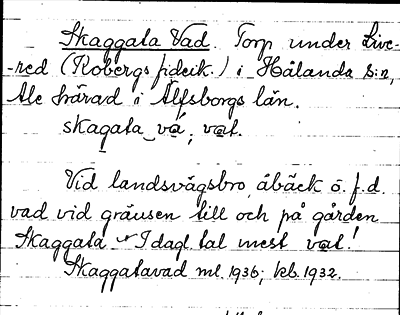 Skaggata Vad. Torp under Live-
-red (Kobergs fideik.) i Hålanda s:n,
Ale härad i Älfsborgs län.
skagata vá; vat.
Vid landsvägsbro, åbäck ö. f.d.
vad vid gränsen till och på gården
Skaggata. I dagl. tal mest vat!
Skaggatavad ml. 1936; kb. 1932.